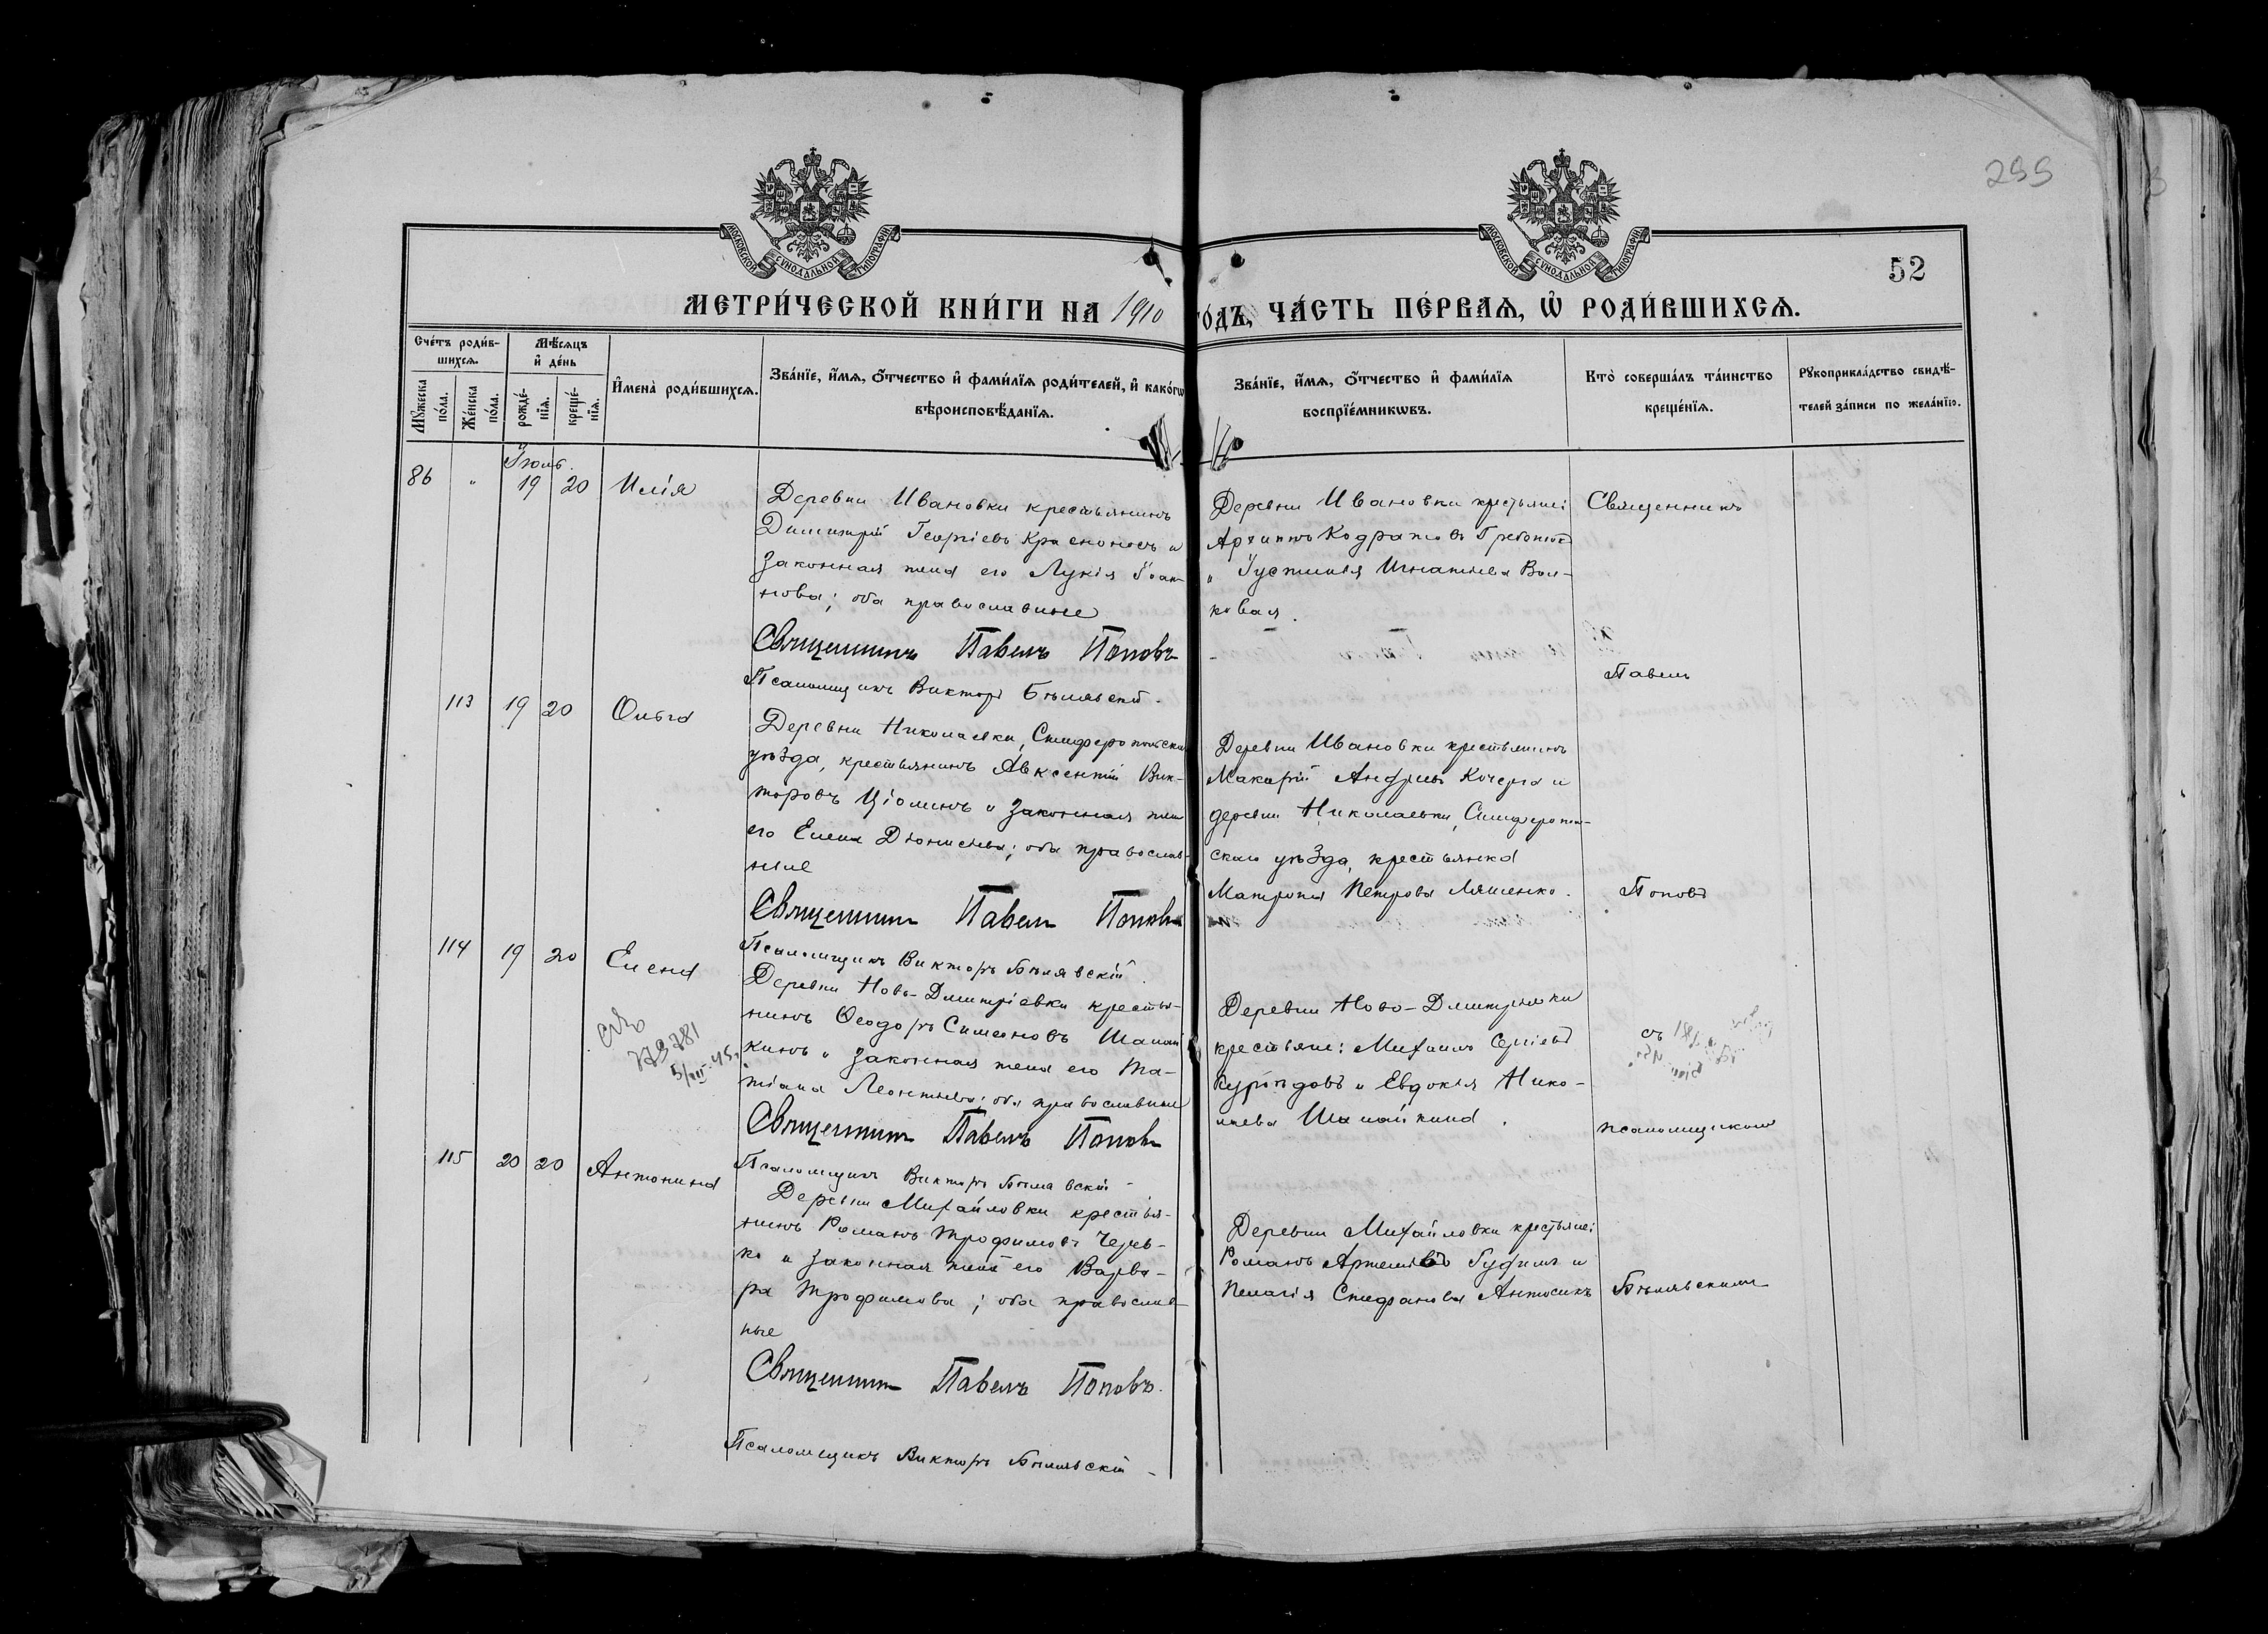 299
52
МОСКОВСКОЙ СѴНОДАЛЬНОЙ ТИПОГРАФІИ
МОСКОВСКОЙ СѴНОДАЛЬНОЙ ТИПОГРАФІИ
МЕТРИ́ЧЕСКОЙ КНИ́ГИ НА 1910 ГО́ДЪ, ЧА́СТЬ ПЕ́РВАѦ, Ѽ РОДИ́ВШИХСѦ.
Сче́тъ роди́в-
шихсѧ.
Мꙋ́жеска
по́ла.
Же́нска
по́ла.
Мѣ́сѧцъ
и҆ де́нь
рожде́-
нїѧ.
креще́-
нїѧ.
И҆мена̀ роди́вшихсѧ.
Зва́нїе, и҆́мѧ, ѻ҆́тчество и҆ фами́лїѧ роди́телей, и҆ како́гѡ
вѣроисповѣ́данїѧ.
Зва́нїе, и҆́мѧ, ѻ҆́тчество и҆ фами́лїѧ
воспрїе́мникѡвъ.
Кто̀ соверша́лъ та́инство
креще́нїѧ.
Рꙋкоприкла́дство свидѣ́-
телей за́писи по жела́нїю.
Іюль.
86 " 19 20 Илія
Деревни Ивановки крестьянинъ
Димитрій Георгіевъ Красноносъ и
законная жена его Лукія Іоан-
нова; оба православные
Священникъ Павелъ Поповъ
Псаломщикъ Викторъ Бѣлявскій.
Деревни Ивановки крестьяне:
Архиппъ Кодратовъ
" Іустинья Игнатьева Вол-
ковая.
Священникъ
Павелъ
113 19 20 Ольга
Деревни Николаевки, Симферопольскаго
уѣзда, крестьянинъ Авксентій Вик-
торовъ Ціоминъ и законная жена
его Елена Діонисіева; оба православ-
ные
Священникъ Павелъ Поповъ
Псаломщикъ Викторъ Бѣлявскій.
Деревни Ивановки крестьянинъ
Макарій Андреевъ Кочерга и
деревни Николаевки, Симферополь-
скаго уѣзда, крестьянка
Матрона Петрова Ляшенко.
Поповъ
114 19 20 Елена
779781
5/III-45.
Деревни Ново-Димитріевки крестья-
нинъ Ѳеодоръ Симеоновъ Шалай-
кинъ и законная жена его Та-
тіана Леонтьева; оба православные
Священникъ Павелъ Поповъ
Псаломщикъ Викторъ Бѣлявскій
Деревни Ново-Дмитріевки
крестьяне: Михаилъ Сергіевъ
и Евдокія Нико-
лаева Шалайкина.
съ
псаломщикомъ
115 20 20 Антонина
Деревни Михайловки крестья-
нинъ Романъ Трофимовъ Черев-
ко и законная жена его Варва-
ра Трофимова; оба православ-
ные
Священникъ Павелъ Поповъ.
Псаломщикъ Викторъ Бѣлявскій
Деревни Михайловки крестьяне:
Романъ Артемьевъ и
Пелагія Стефанова Антосикъ
Бѣлявскимъ